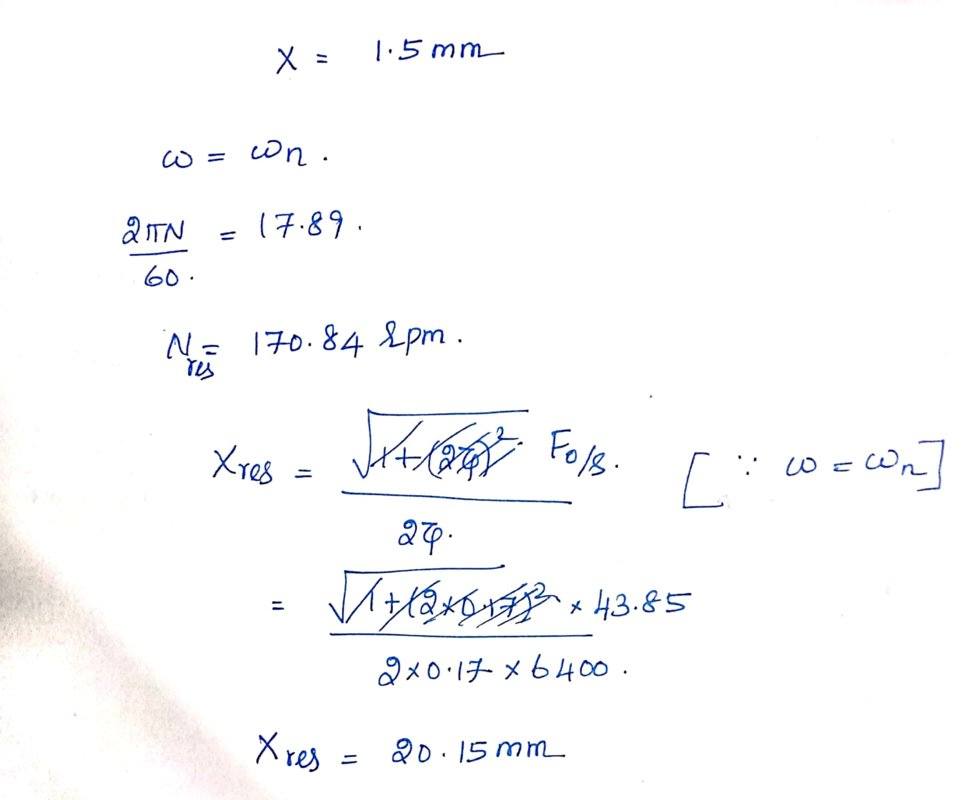 X = 1.5 mm
ω = ωn.
2πN/60. = 17.89.
Nres = 170.84 rpm.
Xres = √1+(2ξ)² F0/s. / 2ξ. [∵ ω = ωn]
= √1+(2×0.17)² × 43.85 / 2×0.17 × 6400.
Xres = 20.15 mm